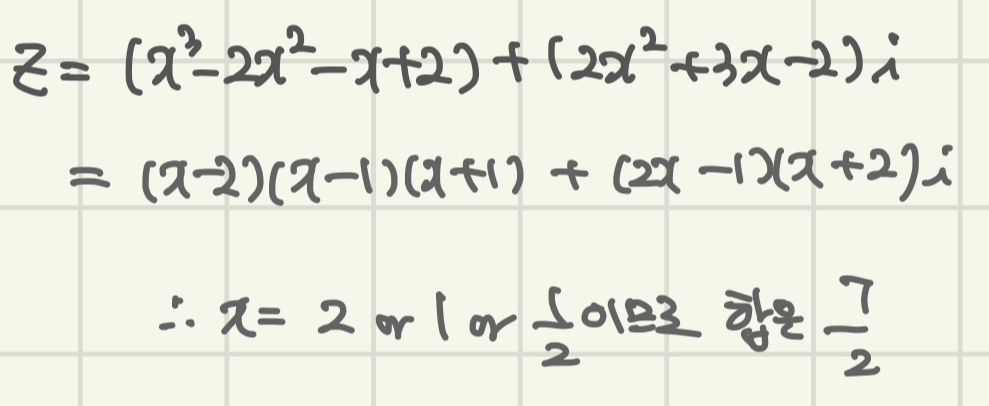 z = (x³-2x²-x+2)+(2x²+3x-2)i
= (x-2)(x-1)(x+1) + (2x-1)(x+2)i
∴ x = 2 or 1 or 1/2 이므로 합은 7/2